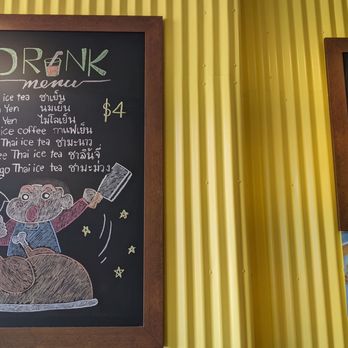 DRINK
menu
ice tea ชาเย็น
Yen นมเย็น $4
Yen ไมโลเย็น
ice coffee กาแฟเย็น
Thai ice tea ชามะนาว
ee Thai ice tea ชาลิ้นจี่
go Thai ice tea ชามะม่วง